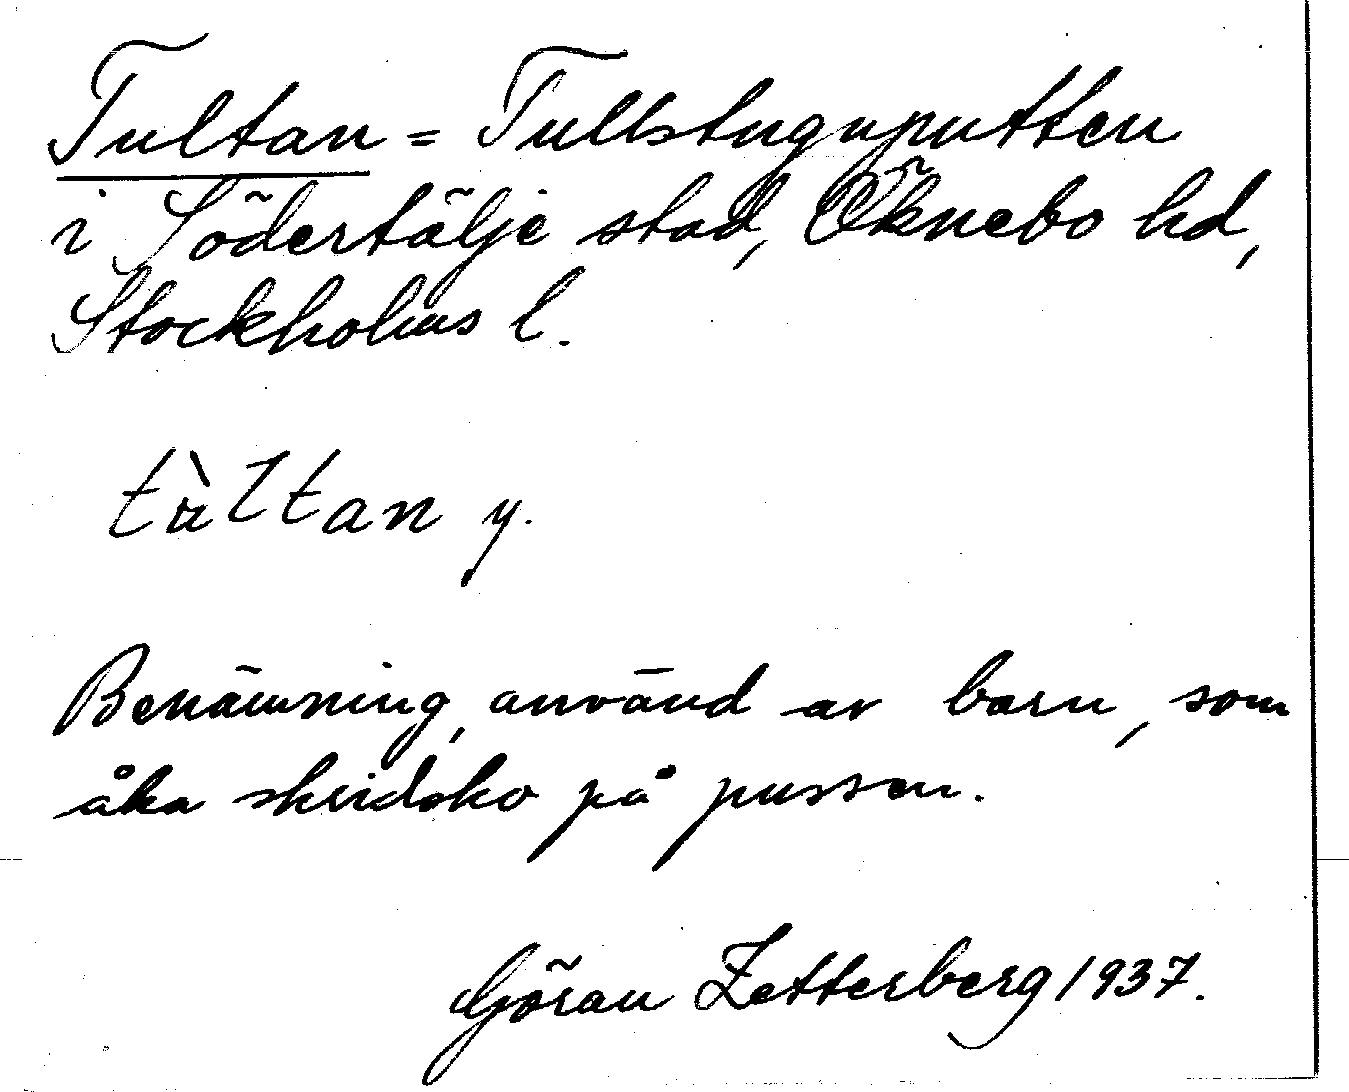 Tultan = Tullstuguputten
i Södertälje stad, Öknebo hd,
Stockholms l.
tu̇̀ltan y.
Benämning, använd av barn, som
åka skridsko på pussen.
Göran Zetterberg 1937.